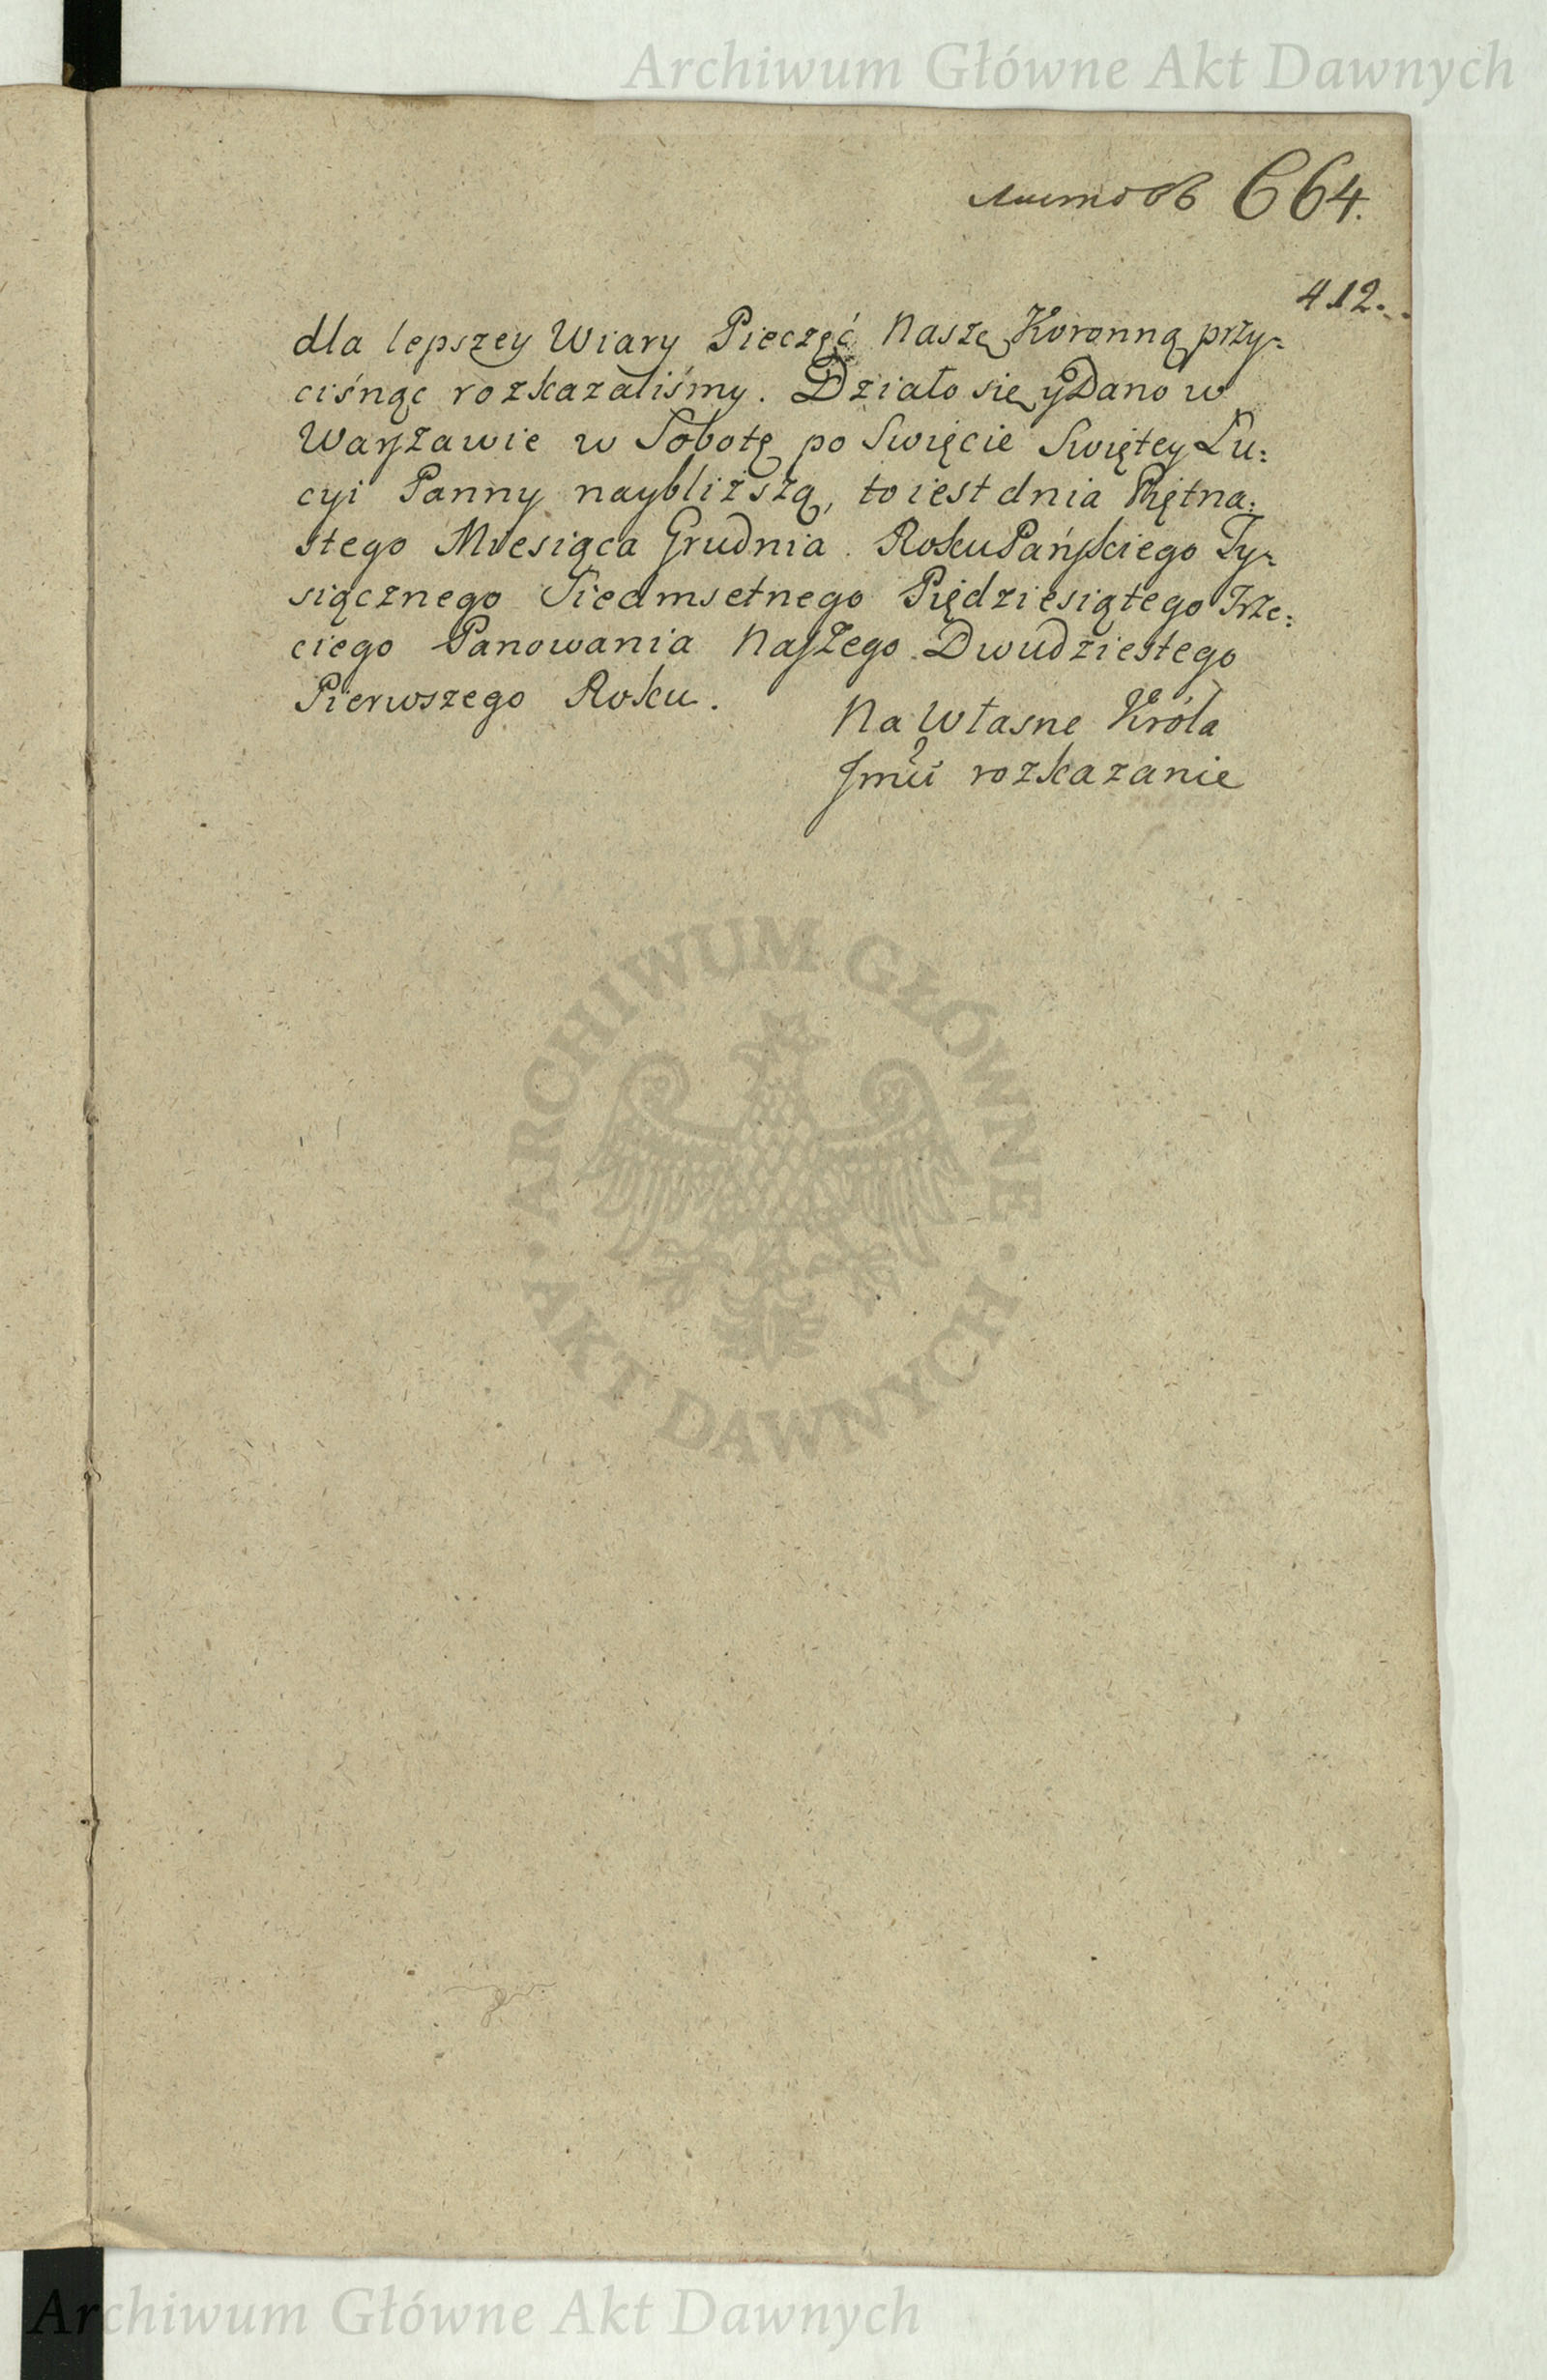 Archiwum Główne Akt Dawnych
листовъ 664.
412.
dla lepszey Wiary Pieczęć Naszę Koronną przy-
ciśnąc rozkazaliśmy. Działo się y Dano w
Warszawie w Sobotę po Swięcie Swiętey Lu:
cyi Panny naybliższą, to iest dnia Piętna:
stego Miesiąca Grudnia. Roku Pańskiego Ty-
siącznego Siedmsetnego Piędziesiątego Trze:
ciego Panowania Naszego Dwudziestego
Pierwszego Roku.
Na Własne Króla
Jmci rozkazanie
ARCHIWUM GŁÓWNE
AKT DAWNYCH
Archiwum Główne Akt Dawnych